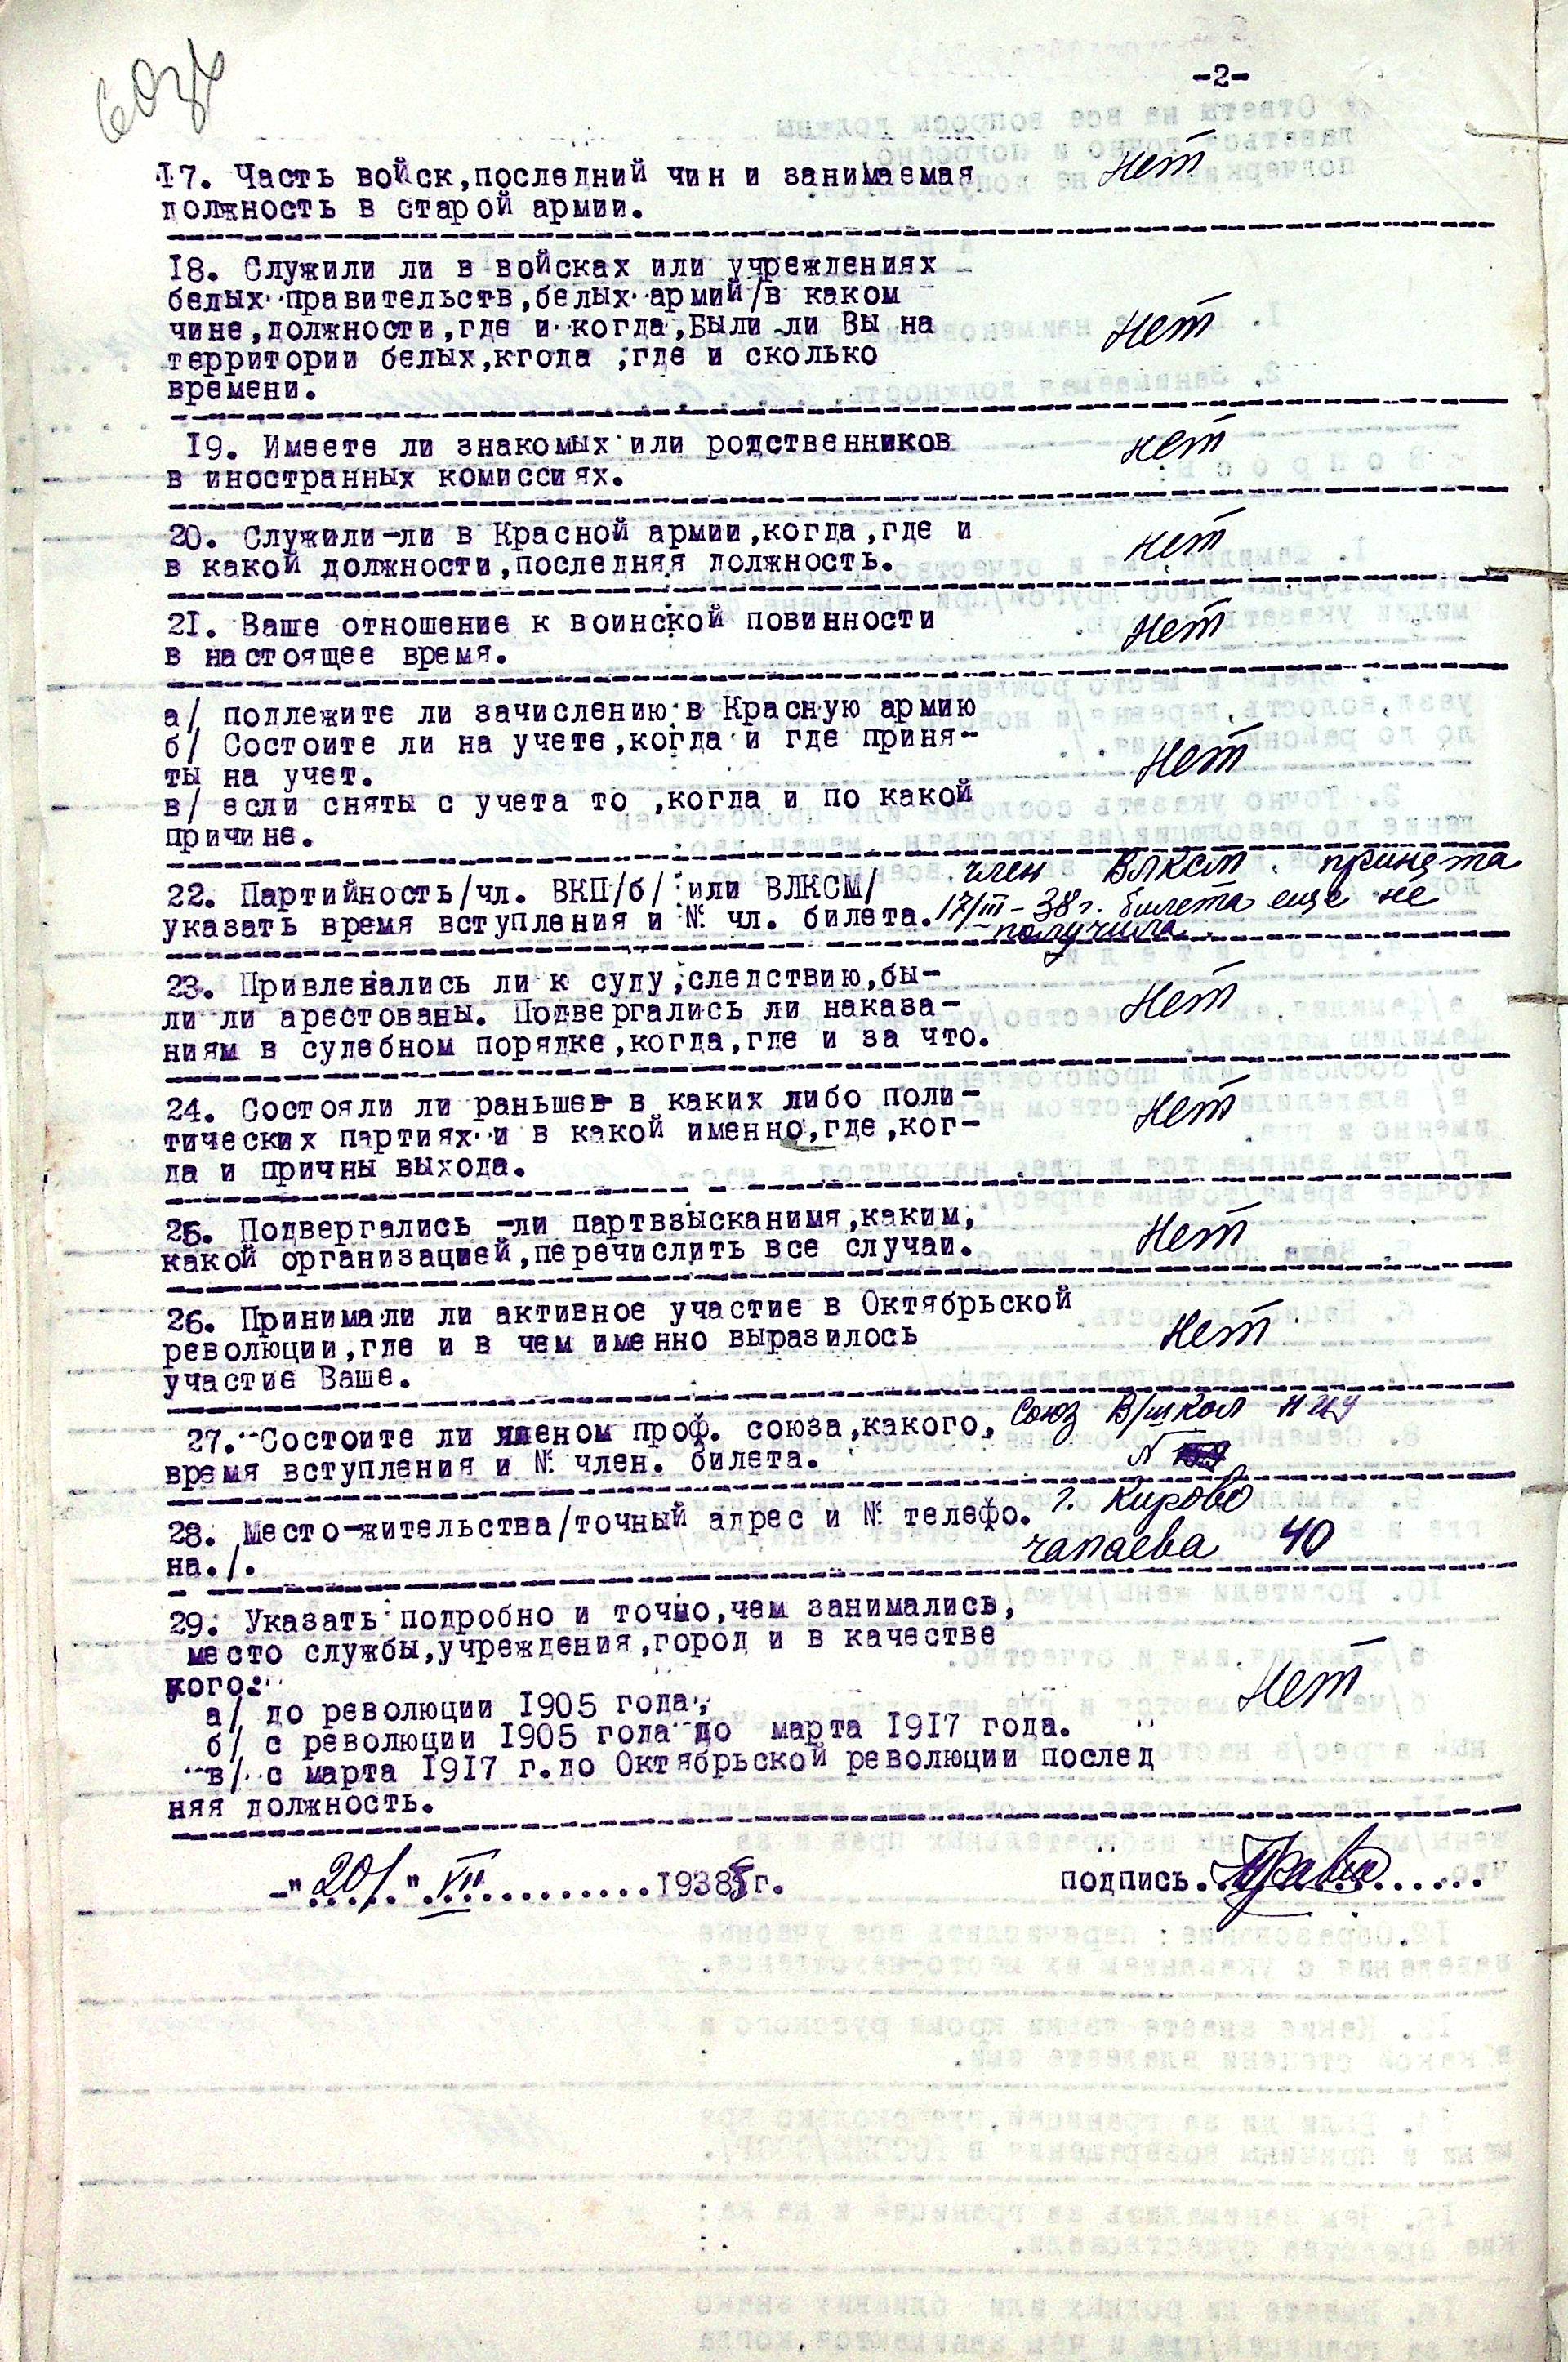 -2-
17. Часть войск,последний чин и занимаемая
должность в старой армии.
Нет
18. Служили ли в войсках или учреждениях
белых правительств,белых армий/в каком
чине,должности,где и когда,Были ли Вы на
территории белых,кгода ,где и сколько
времени.
Нет
19. Имеете ли знакомых или родственников
в иностранных комиссиях.
Нет
20. Служили-ли в Красной армии,когда,где и
в какой должности,последняя должность.
Нет
21. Ваше отношение к воинской повинности
в настоящее время.
Нет
а/ подлежите ли зачислению в Красную армию
б/ Состоите ли на учете,когда и где приня-
ты на учет.
в/ если сняты с учета то ,когда и по какой
причине.
Нет
22. Партийность/чл. ВКП/б/ или ВЛКСМ/
указать время вступления и № чл. билета.
член ВЛКСМ. принята
17/III-38г. билета еще не
получила.
23. Привлевались ли к суду,следствию,бы-
ли ли арестованы. Подвергались ли наказа-
ниям в судебном порядке,когда,где и за что.
Нет
24. Состояли ли раньшев в каких либо поли-
тических партиях и в какой именно,где,ког-
да и причны выхода.
Нет
25. Подвергались -ли партвзысканимя,каким,
какой организацией,перечислить все случаи.
Нет
26. Принимали ли активное участие в Октябрьской
революции,где и в чем именно выразилось
участие Ваше.
Нет
27. Состоите ли членом проф. союза,какого,
время вступления и № член. билета.
Союз В/школ
N
28. Место-жительства/точный адрес и № телефо.
на./.
г. Кирово
чапаева 40
29. Указать подробно и точно,чем занимались,
место службы,учреждения,город и в качестве
кого:
а/ до революции 1905 года,
б/ с революции 1905 года до марта 1917 года.
в/ с марта 1917 г.до Октябрьской революции послед
няя должность.
Нет
-"20/." VII...........1938г.
подпись.